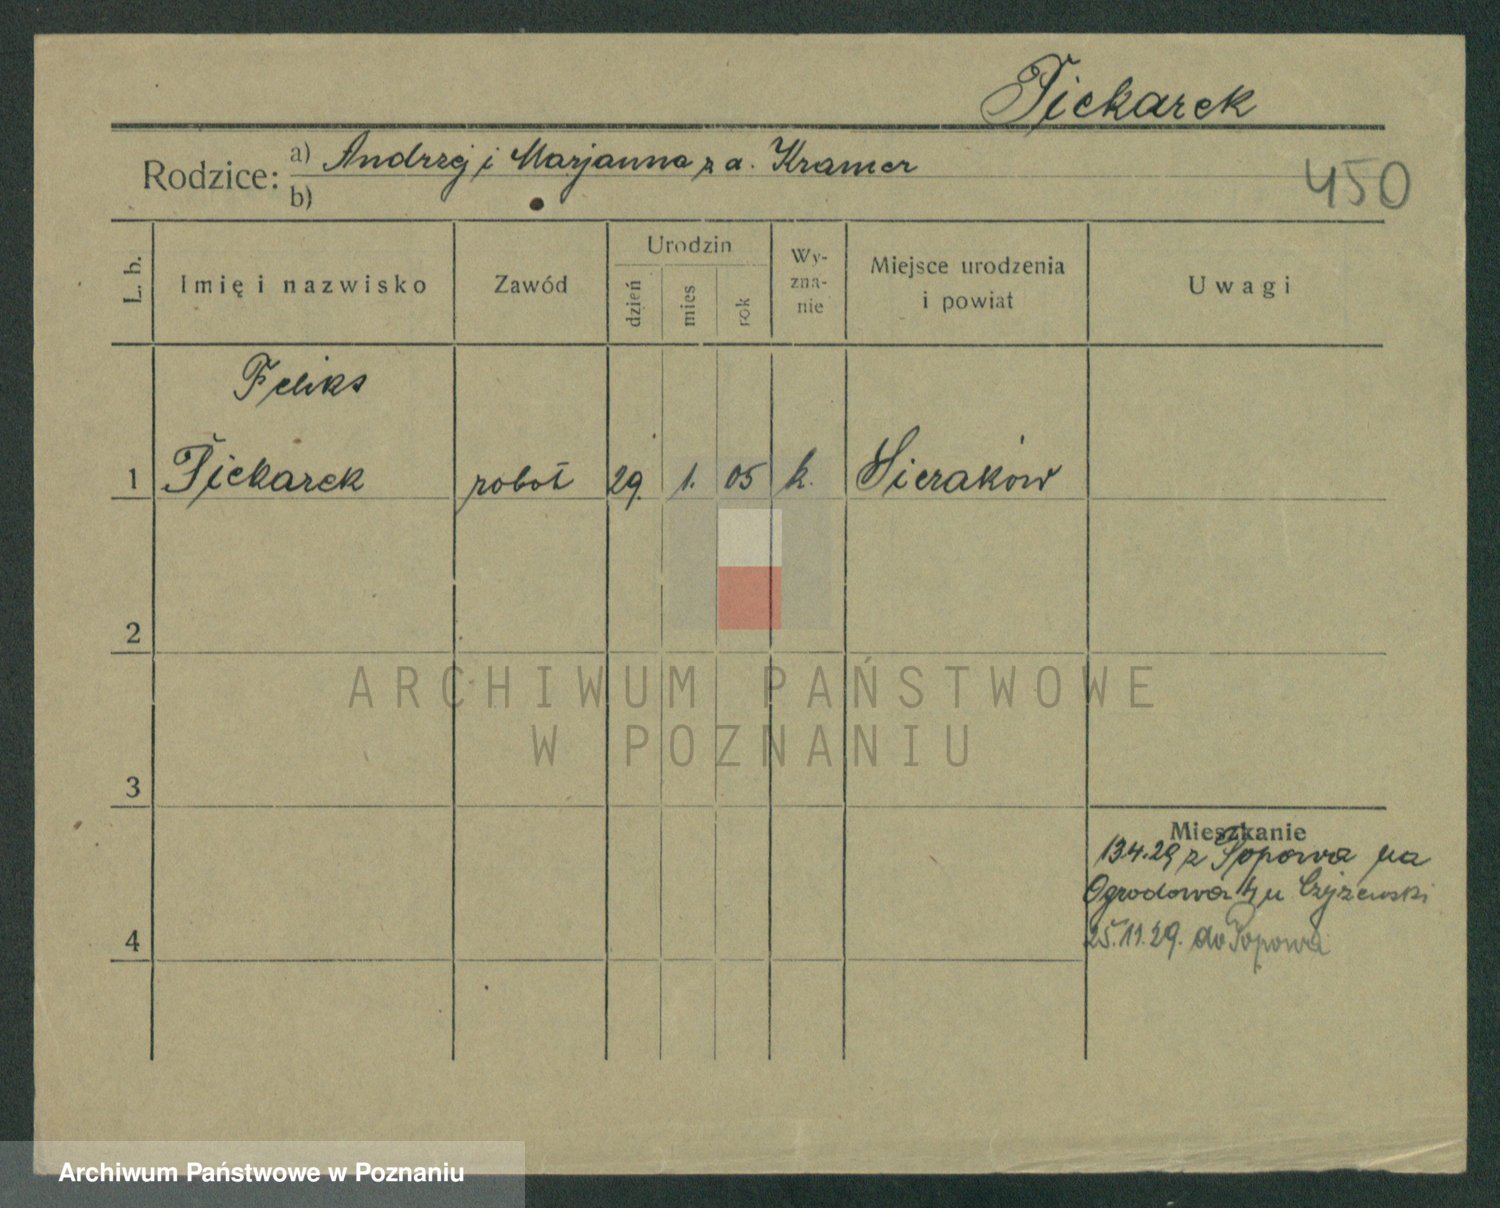 Piekarek
Rodzice: a) Andrzej i Marjanna z d. Kramer
b)
450
L. b.
Imię i nazwisko
Zawód
Urodzin
dzień
mies
rok
Wy-
zna-
nie
Miejsce urodzenia
i powiat
Uwagi
Feliks
1 Piekarek robot 29 1. 05 k. Sieraków
2
ARCHIWUM PAŃSTWOWE
W POZNANIU
3
Mieszkanie
13.4.29 z Popowa na
Ogrodowa 4 u Czyżewski
4
25.11.29. do Popowa
Archiwum Państwowe w Poznaniu